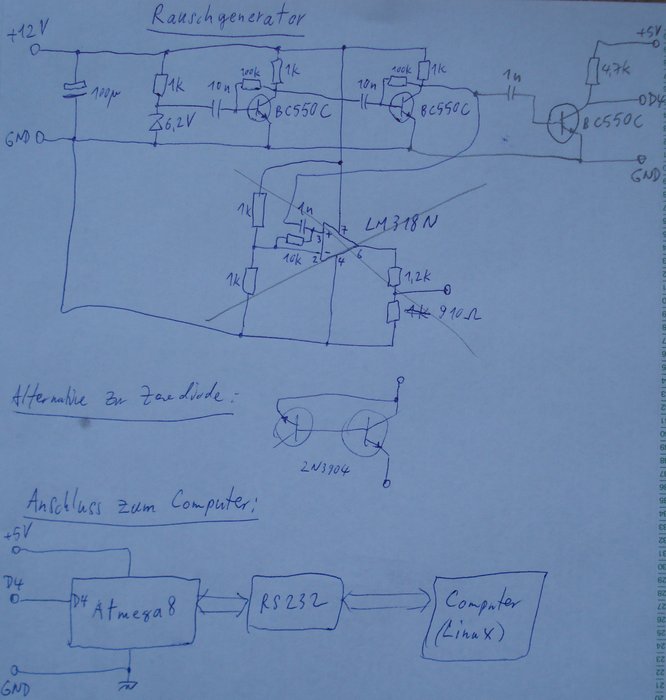 Rauschgenerator
+12V
+5V
100µ
1k
10n
100k
1k
BC550C
10n
100k
1k
BC550C
1n
4,7k
D4
BC550C
6,2V
GND
GND
1k
1n
LM318N
+
3
7
10k
2
-
4
6
1k
1,2k
1k 910Ω
Alternative zu Zenerdiode:
2N3904
Anschluss zum Computer:
+5V
D4
D4 Atmega8
RS232
Computer
(Linux)
GND